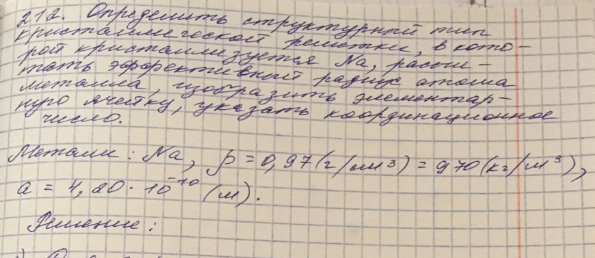 212. Определить структурный тип
кристаллической решетки, в кото-
рой кристаллизуется Na, рассчи-
тать эффективный радиус атома
металла, изобразить элементар-
ную ячейку, указать координационное
число.
Металл: Na, ρ = 0,97 (г/см³) = 970 (кг/м³),
a = 4,20 · 10⁻¹⁰ (м).
Решение: